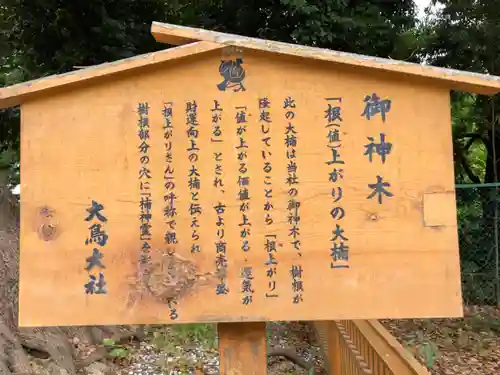 御神木
「根(値)上がりの大楠」
此の大楠は当社の御神木で、樹根が
隆起していることから「根上がり」
「値が上がる価値が上がる・運気が
上がる」とされ、古より商売繁盛
財運向上の大楠と伝えられ
「根上がりさん」の呼称で親し
樹根部分の穴に「楠神霊」を
大鳥大社